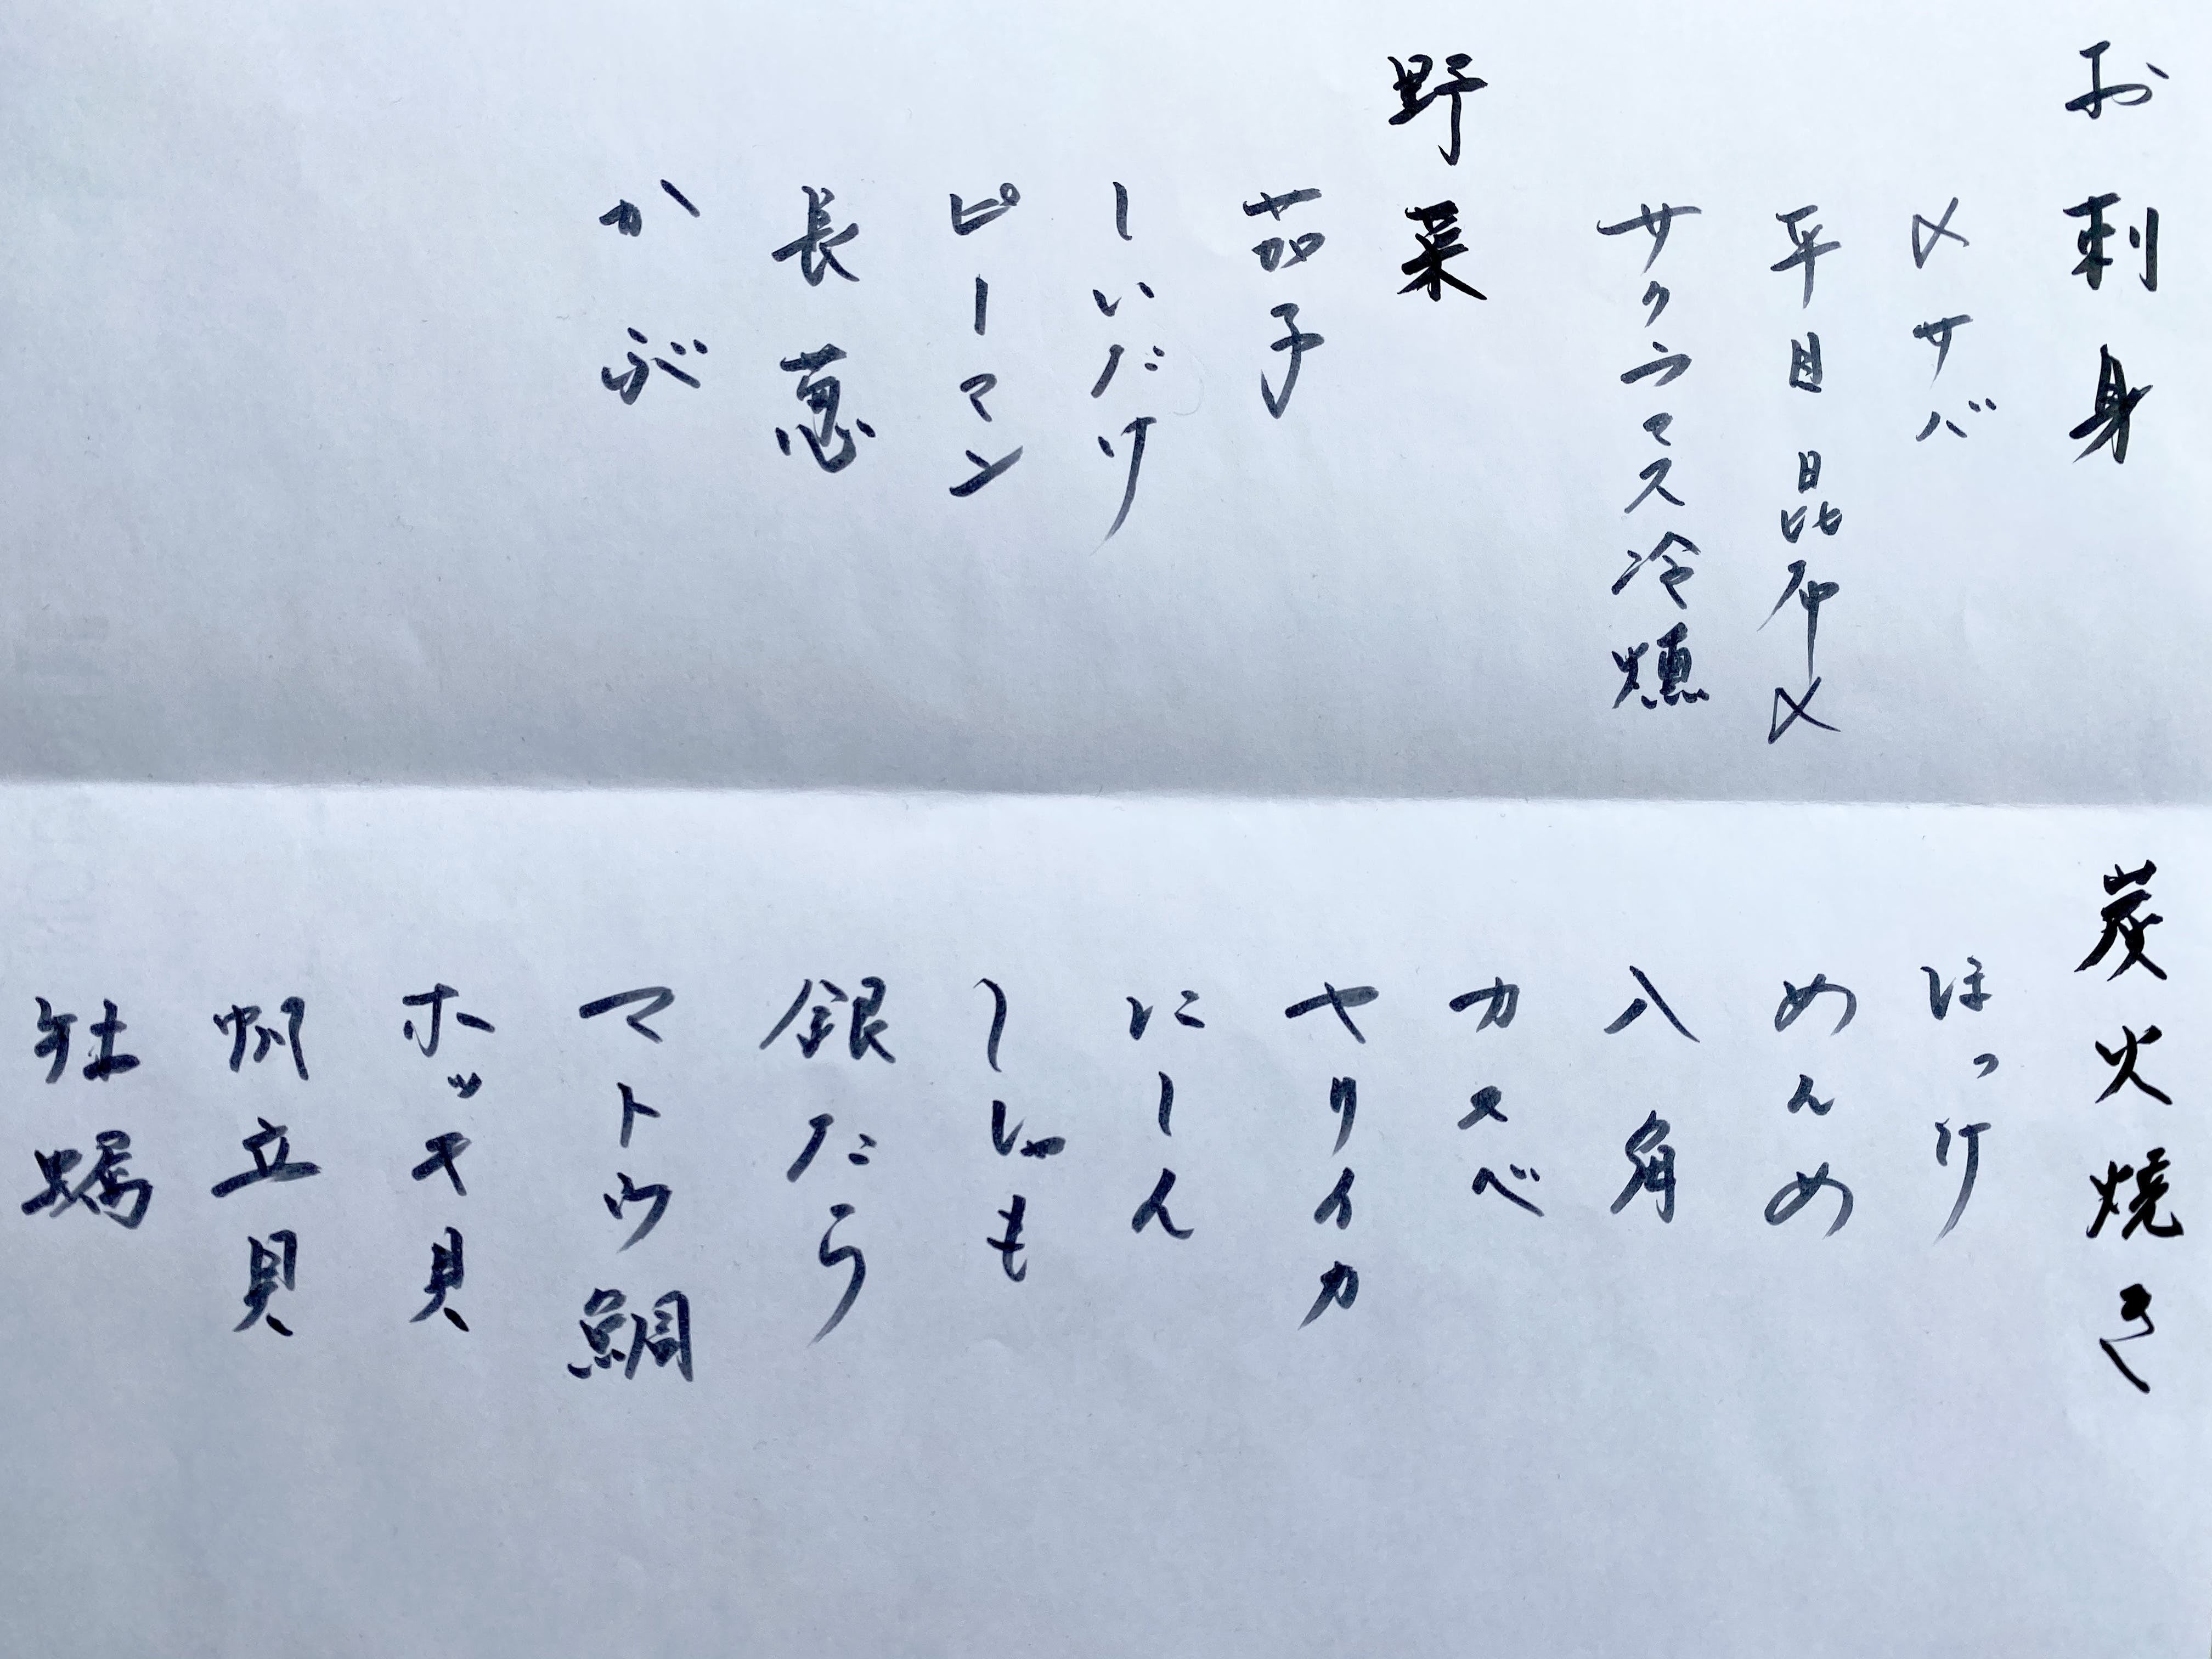 お刺身
〆サバ
平目昆布〆
サクラマス冷燻
野菜
茄子
しいたけ
ピーマン
長葱
かぶ
炭火焼き
ほっけ
めんめ
八角
カスベ
ヤリイカ
にしん
ししゃも
銀だら
マトウ鯛
ホッキ貝
帆立貝
牡蠣